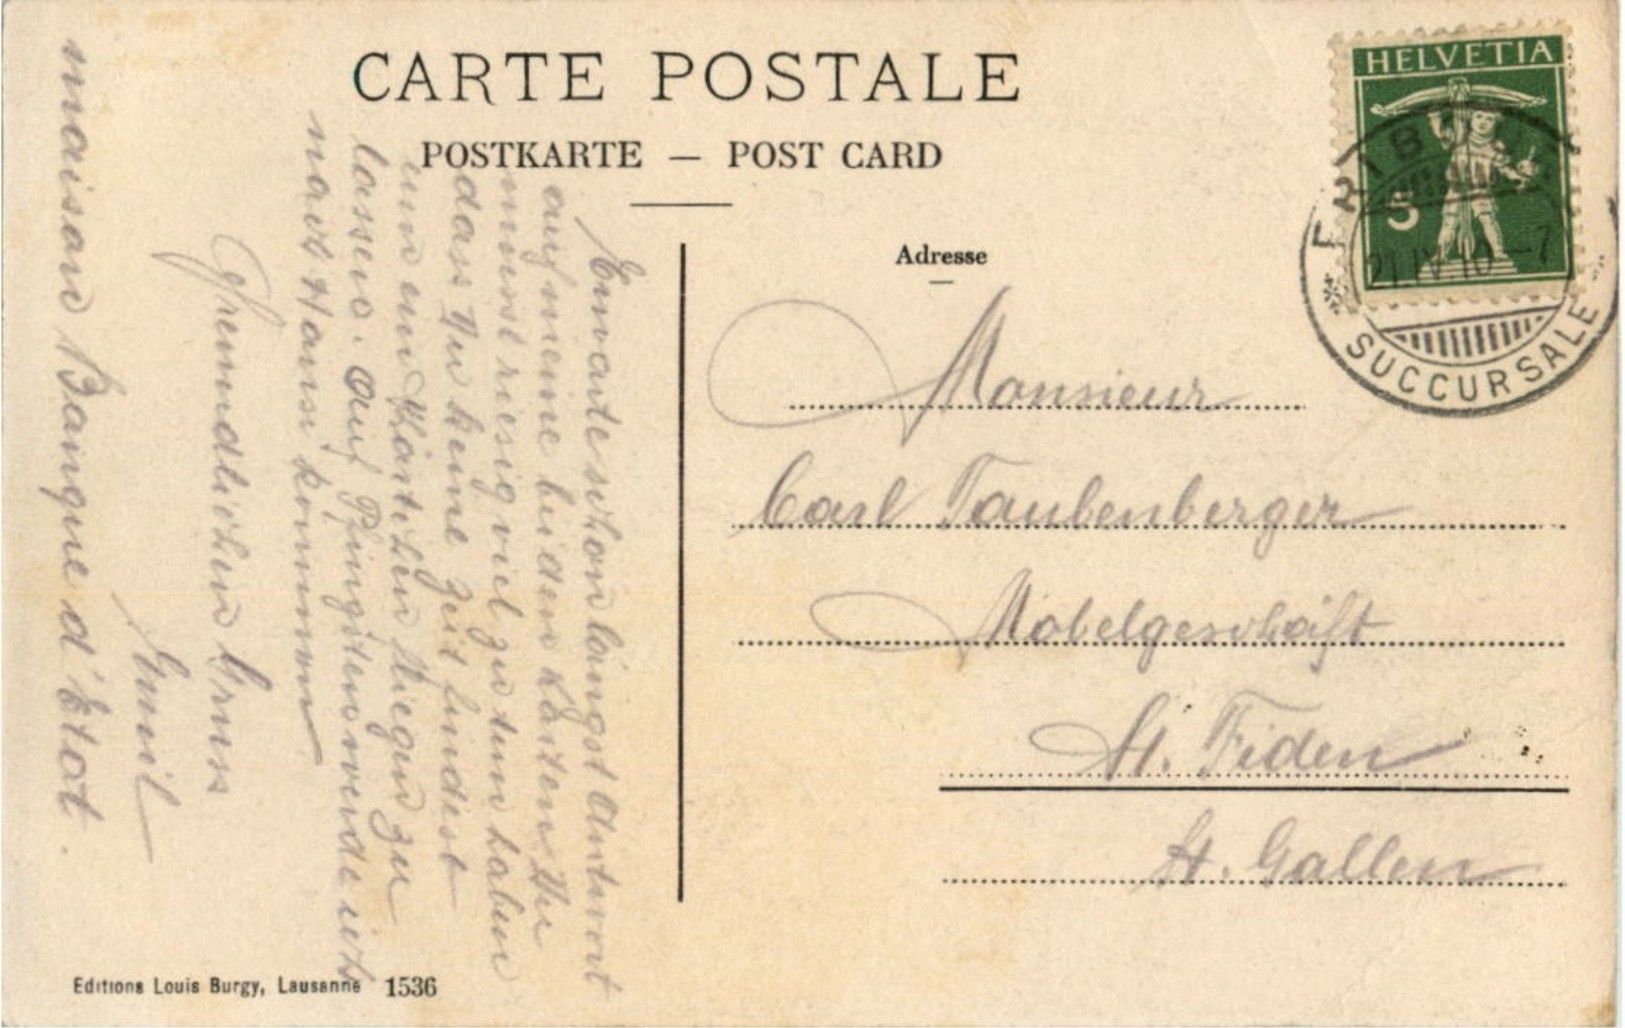 CARTE POSTALE
POSTKARTE — POST CARD
HELVETIA
5
FRIBOURG
21.IV.10–7
SUCCURSALE
Adresse
Monsieur
Carl Taubenberger
Möbelgeschäft
St. Fiden
St. Gallen
Erwarte schon längst Antwort
auf meine beiden Karten. Du
musst riesig viel zu tun haben
dass Du keine Zeit findest
um ein Kärtchen fliegen zu
lassen. Auf Pfingsten werde ich
nach Hause kommen
Freundlichen Gruss
Emil
maison Banque d'Etat.
Editions Louis Burgy, Lausanne 1536